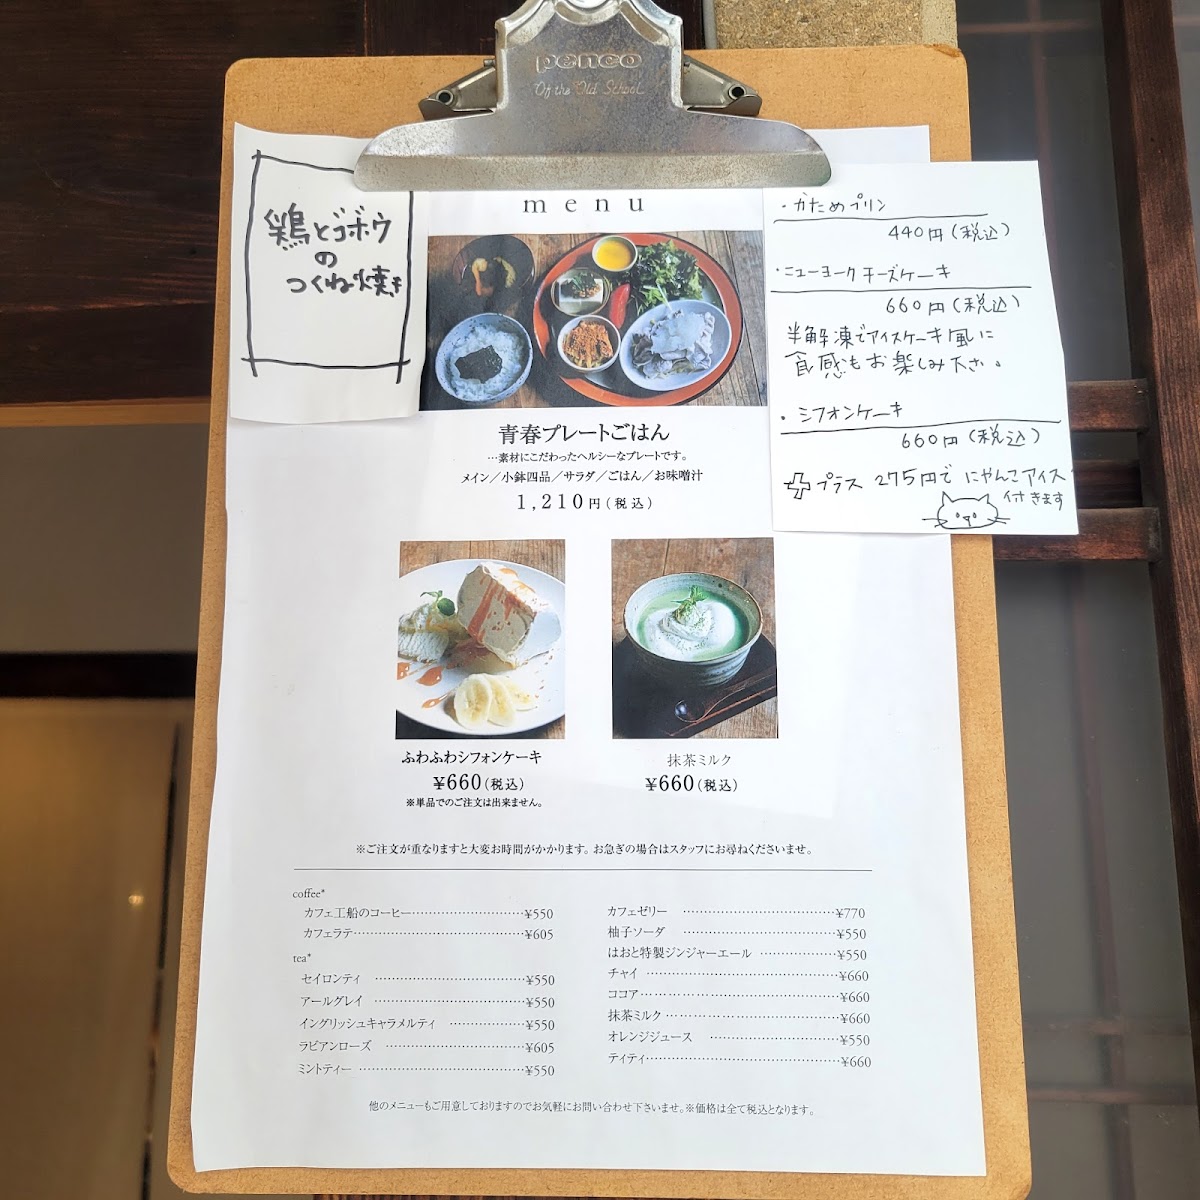 penco
Of the Old School
鶏とゴボウ
の
つくね焼き
menu
青春プレートごはん
…素材にこだわったヘルシーなプレートです。
メイン／小鉢四品／サラダ／ごはん／お味噌汁
1,210円(税込)
・かためプリン
440円(税込)
・ニューヨークチーズケーキ
660円(税込)
半解凍でアイスケーキ風に
食感もお楽しみ下さい。
・シフォンケーキ
660円(税込)
プラス 275円で にゃんこアイス
付きます
ふわふわシフォンケーキ
¥660(税込)
※単品でのご注文は出来ません。
抹茶ミルク
¥660(税込)
※ご注文が重なりますと大変お時間がかかります。お急ぎの場合はスタッフにお尋ねくださいませ。
coffee*
カフェ工船のコーヒー…………………………¥550
カフェラテ…………………………………………¥605
tea*
セイロンティ ……………………………………¥550
アールグレイ ……………………………………¥550
イングリッシュキャラメルティ …………………¥550
ラビアンローズ …………………………………¥605
ミントティー ………………………………………¥550
カフェゼリー …………………………………¥770
柚子ソーダ …………………………………¥550
はおと特製ジンジャーエール ………………¥550
チャイ ……………………………………………¥660
ココア……………………………………………¥660
抹茶ミルク………………………………………¥660
オレンジジュース ……………………………¥550
ティティ……………………………………………¥660
他のメニューもご用意しておりますのでお気軽にお問い合わせ下さいませ。※価格は全て税込となります。